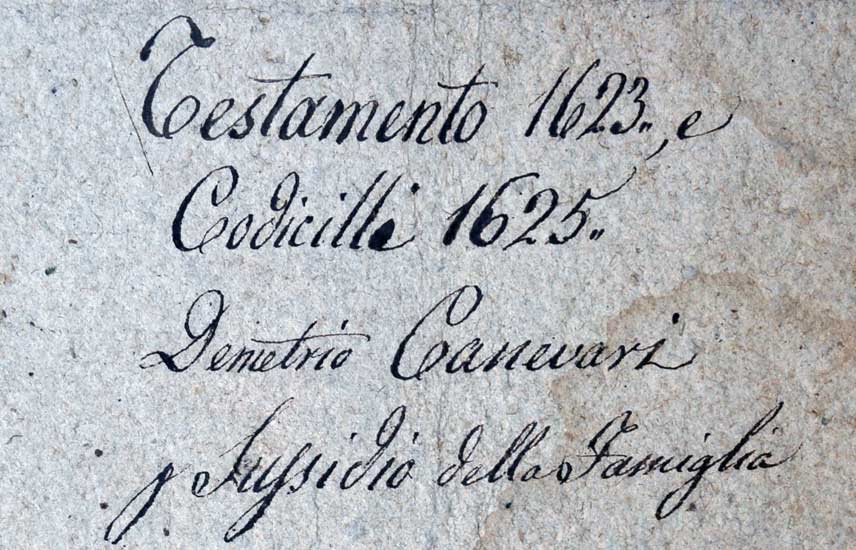 Testamento 1623.., e
Codicilli 1625..
Demetrio Canevari
p Sussidio della Famiglia